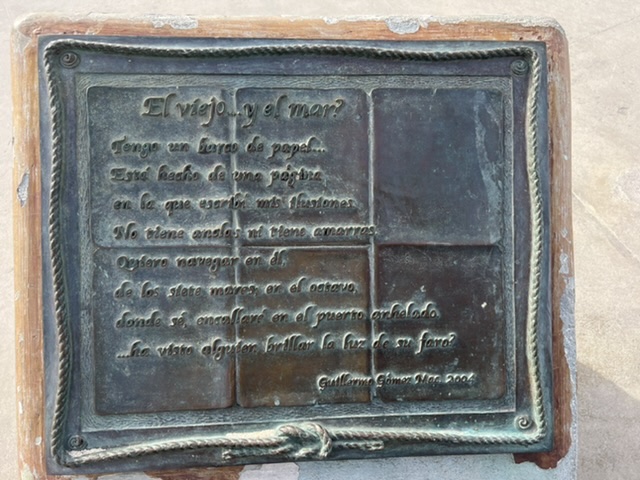 El viejo...y el mar?
Tengo un barco de papel...
Está hecho de una página
en la que escribí mis ilusiones
No tiene anclas ni tiene amarras
Quiero navegar en él
de los siete mares en el octavo
donde sé, encallaré en el puerto anhelado
...ha visto alguien brillar la luz de su faro?
Guillermo Gómez Mac 2004